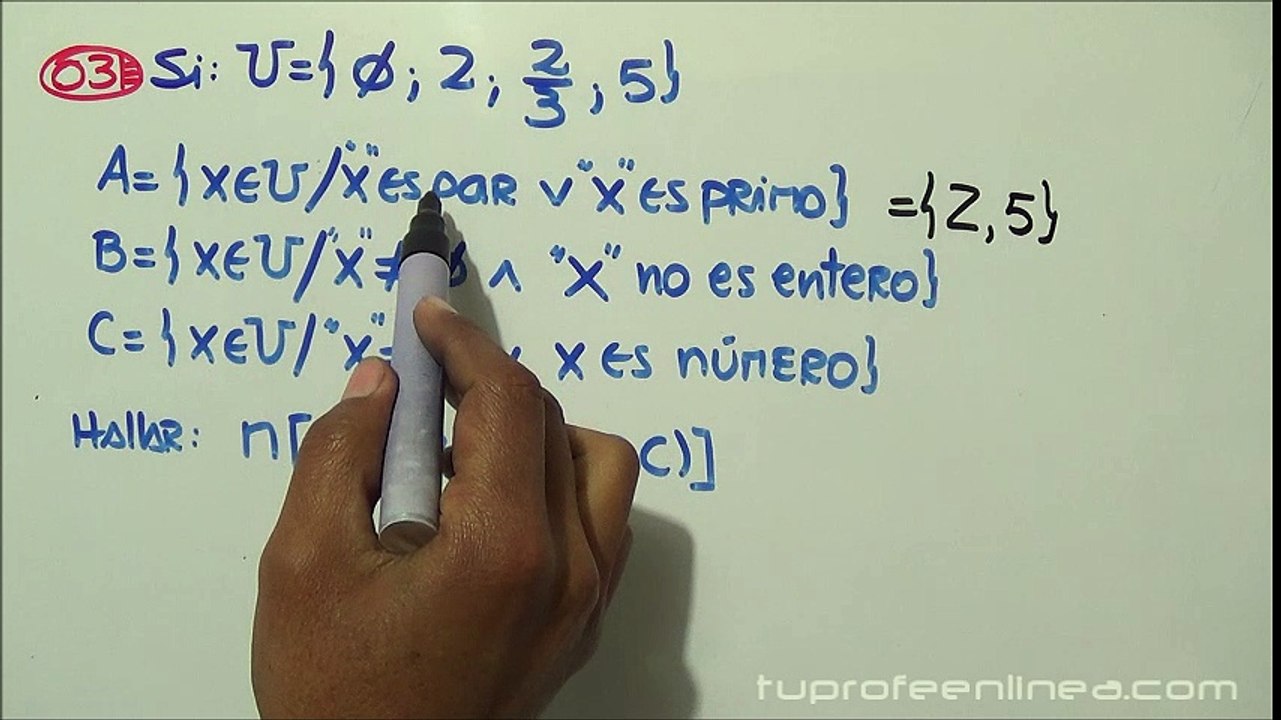 03 Si: U={ φ; 2; 2/3; 5}
A={x∈U/"x" es par ∨ "x" es primo} ={2,5}
B={x∈U/"x"≠ ∧ "x" no es entero}
C={x∈U/"x"= x es número}
Hallar: n[ C)]
tuprofeenlinea.com